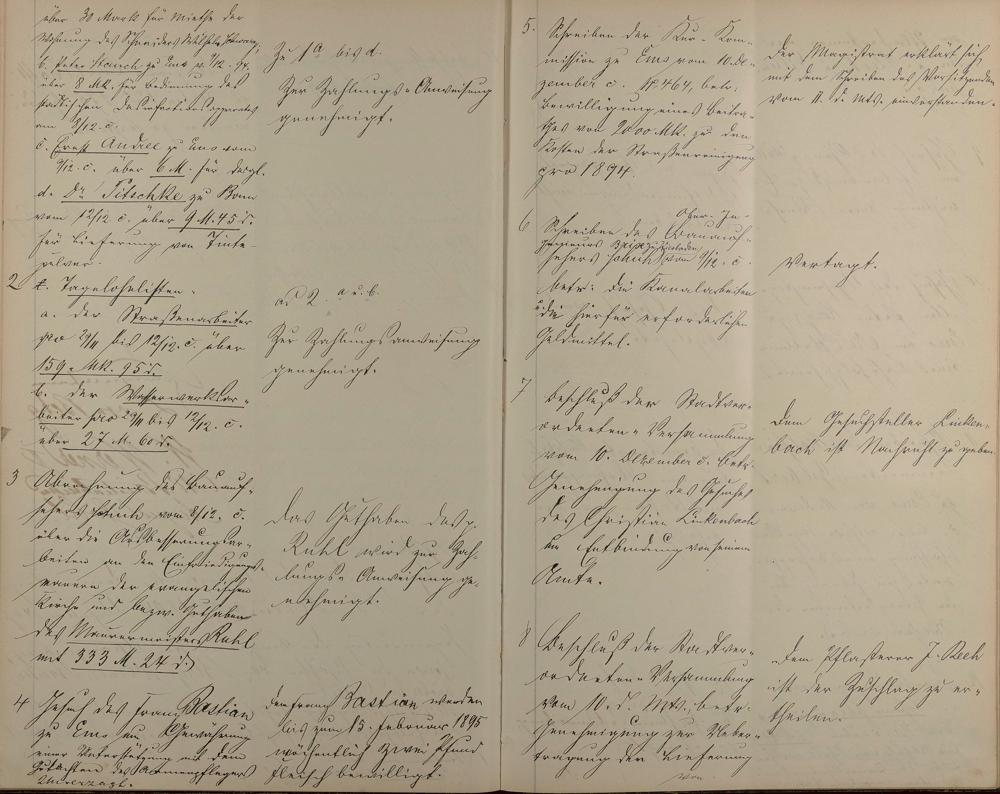 über 30 Mark für Miethe der
Wohnung des Schneiders Wilhelm
b. Peter Strauch zu Ems v. 7/12. 94.
über 8 Mk. für Bedienung des
städtischen Desinfections apparates
vom 8/12. c.
c. Ernst Andree zu Ems vom
9/12. c. über 6 M. für desgl.
d. Dr. Titschke zu Bonn
vom 12/12 c. über 9 M. 45 d.
für Lieferung von Tinte-
pulver.
Zu 1a bis d.
Zur Zahlungs-Anweisung
genehmigt.
2 Tagelohnlisten.
a. der Straßenarbeiter
pro 29/11 bis 12/12. c. über
159. Mk. 95 d.
b. der Wasserwerks-Ar-
beiter pro 29/11 bis 12/12. c.
über 27 M. 60 d.
ad 2. a u. b.
Zur Zahlungsanweisung
genehmigt.
3 Abrechnung des Bauauf-
sehers vom 8/12. c.
über die Ausbesserungsar-
beiten an den Einfriedigungs-
mauern der evangelischen
Kirche und bezw. Guthaben
des Maurermeisters Ruhl
mit 333 M. 24 d.
Das Guthaben des p.
Ruhl wird zur Zah-
lungs-Anweisung ge-
nehmigt.
4 Gesuch des Franz Bastian
zu Ems um Gewährung
einer Unterstützung mit dem
Gutachten des Armenpflegers
Unverzagt.
Dem Franz Bastian werden
bis zum 15. Februar 1895
wöchentlich zwei Pfund
Fleisch bewilligt.
5. Schreiben der Kur-Kom-
mission zu Ems vom 10. De-
zember c. No 464, betr.
Bewilligung eines Beitra-
ges von 2000 Mk. zu den
Kosten der Straßenreinigung
pro 1894.
Der Magistrat erklärt sich
mit dem Schreiben des Vorsitzenden
vom 11. d. Mts. einverstanden.
6 Schreiben des Ober-In-
genieurs Brix zu Wiesbaden
vom 9/12. c.
betr. die Kanalarbeiten
u. die hierfür erforderlichen
Geldmittel.
Vertagt.
7 Beschluß der Stadtver-
ordneten-Versammlung
vom 10. Dezember c. betr.
Genehmigung des Gesuches
des Christian Linkenbach
um Entbindung von seinem
Amte.
Dem Gesuchsteller Linken-
bach ist Nachricht zu geben.
8 Beschluß der Stadtver-
ordneten-Versammlung
vom 10. d. Mts., betr.
Genehmigung zur Ueber-
tragung der Lieferung
von
Dem Pflasterer J. Reck
ist der Zuschlag zu er-
theilen.